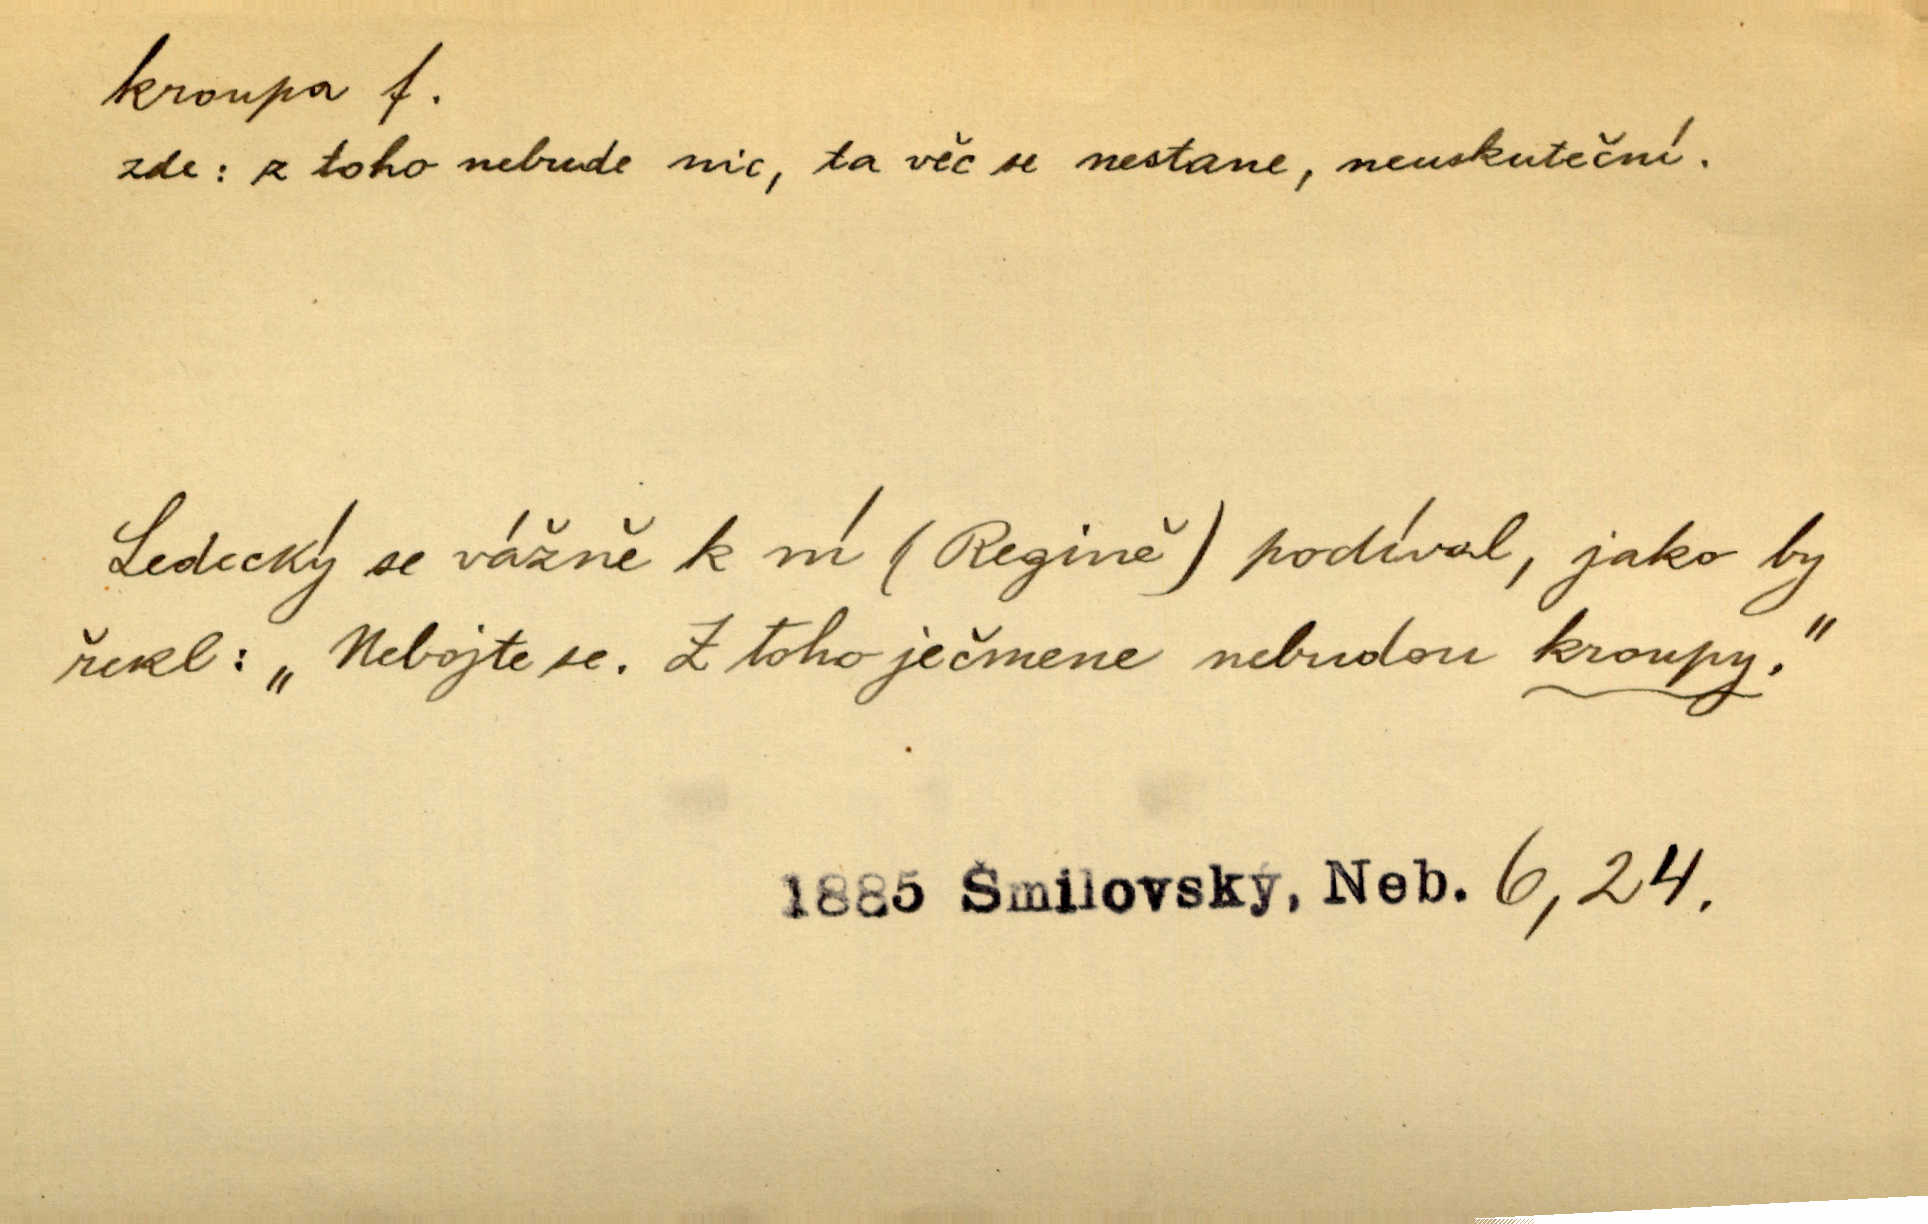 kroupa f.
zde: z toho nebude nic, ta věc se nestane, neuskuteční.
Ledecký se vážně k ní (Regině) podíval, jako by
řekl: „Nebojte se. Z toho ječmene nebudou kroupy."
1885 Šmilovský, Neb. 6, 24.